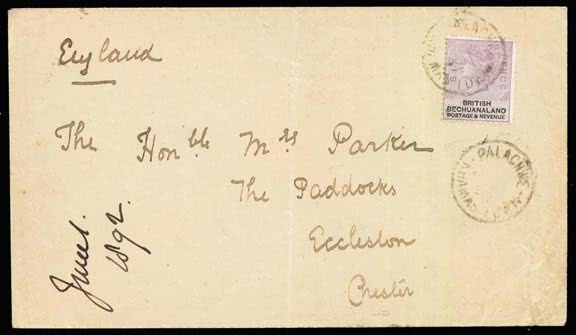 England
BRITISH
BECHUANALAND
POSTAGE & REVENUE
The Honble Mrs Parker
The Paddocks
Eccleston
Chester
June 1.
1892.